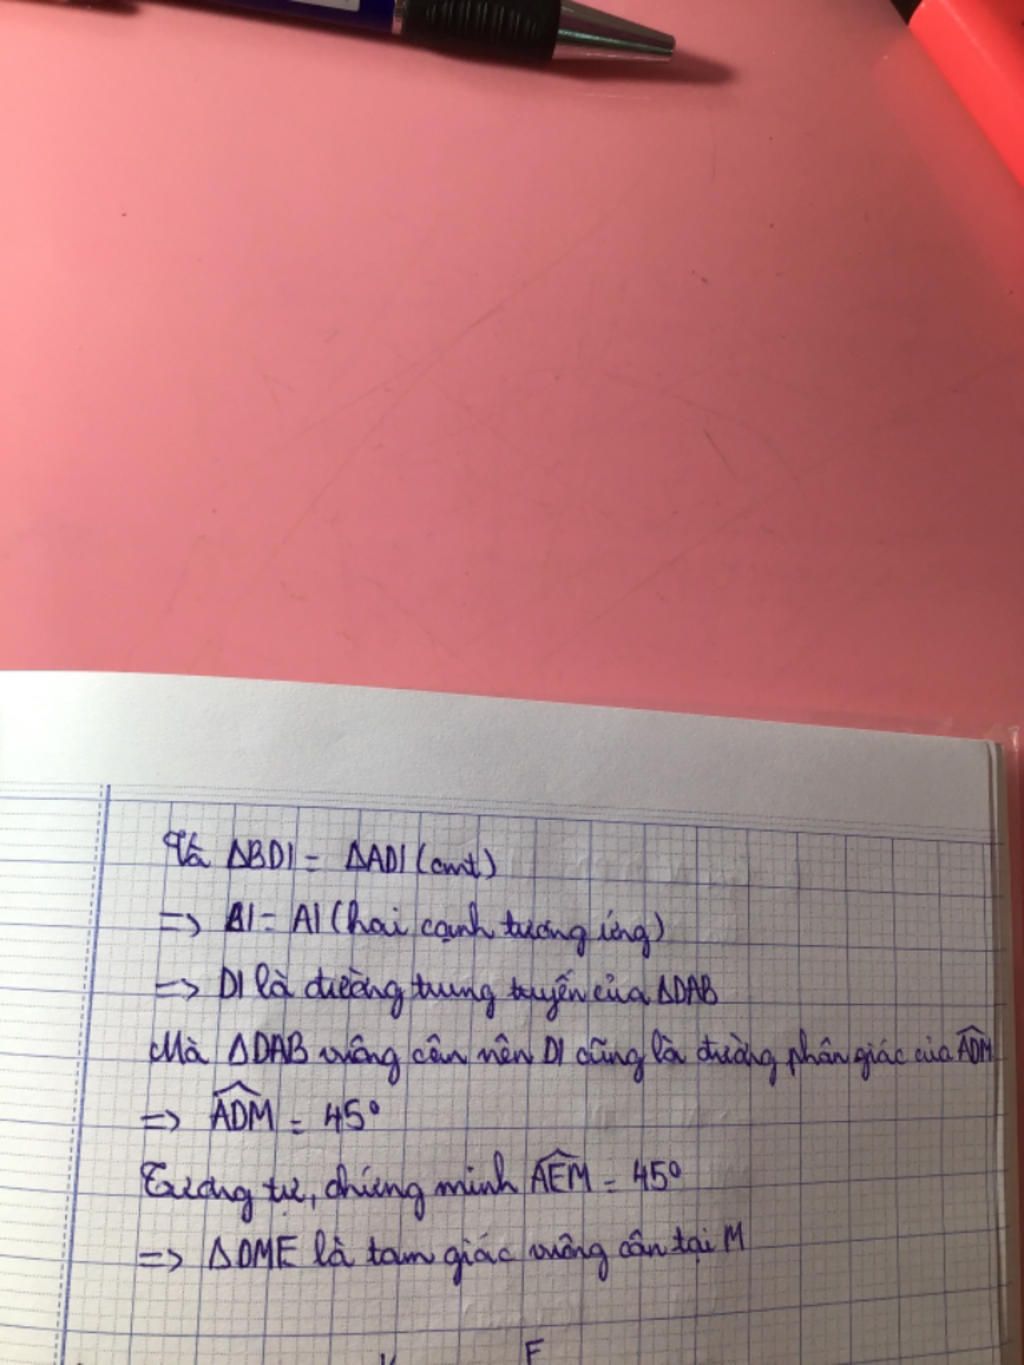 Và ΔBDI = ΔADI (cmt)
=> BI = AI (hai cạnh tương ứng)
=> DI là đường trung tuyến của ΔDAB
Mà ΔDAB vuông cân nên DI cũng là đường phân giác của ADM
=> ADM = 45°
Tương tự, chứng minh AEM = 45°
=> ΔDME là tam giác vuông cân tại M
F